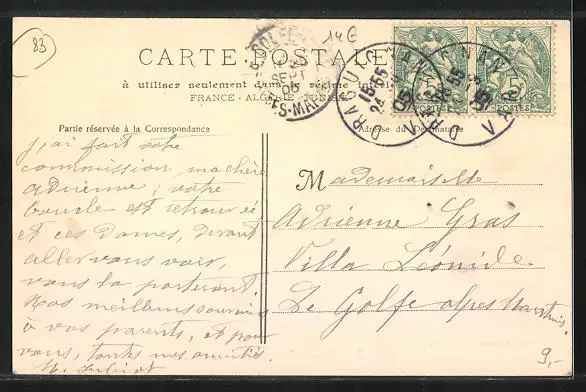 83
14 €
CARTE POSTALE
à utiliser seulement dans le régime
FRANCE - ALGÉRIE - TUNISIE
Partie réservée à la Correspondance
Adresse du Destinataire
GOLFE
SEPT
05
ES-MAR
DRAGUIGNAN
15 55
24
05
VAR
POSTES
5
J'ai fait votre
commission, ma chère
Adrienne ; votre
boucle est retrouvée
et ces Dames, devant
aller vous voir,
vous la porteront.
Nos meilleurs souvenirs
à vos parents, et pour
vous, toutes mes amitiés.
Mademoiselle
Adrienne Gras
Villa Léonide
Le Golfe Alpes Maritimes
9,-